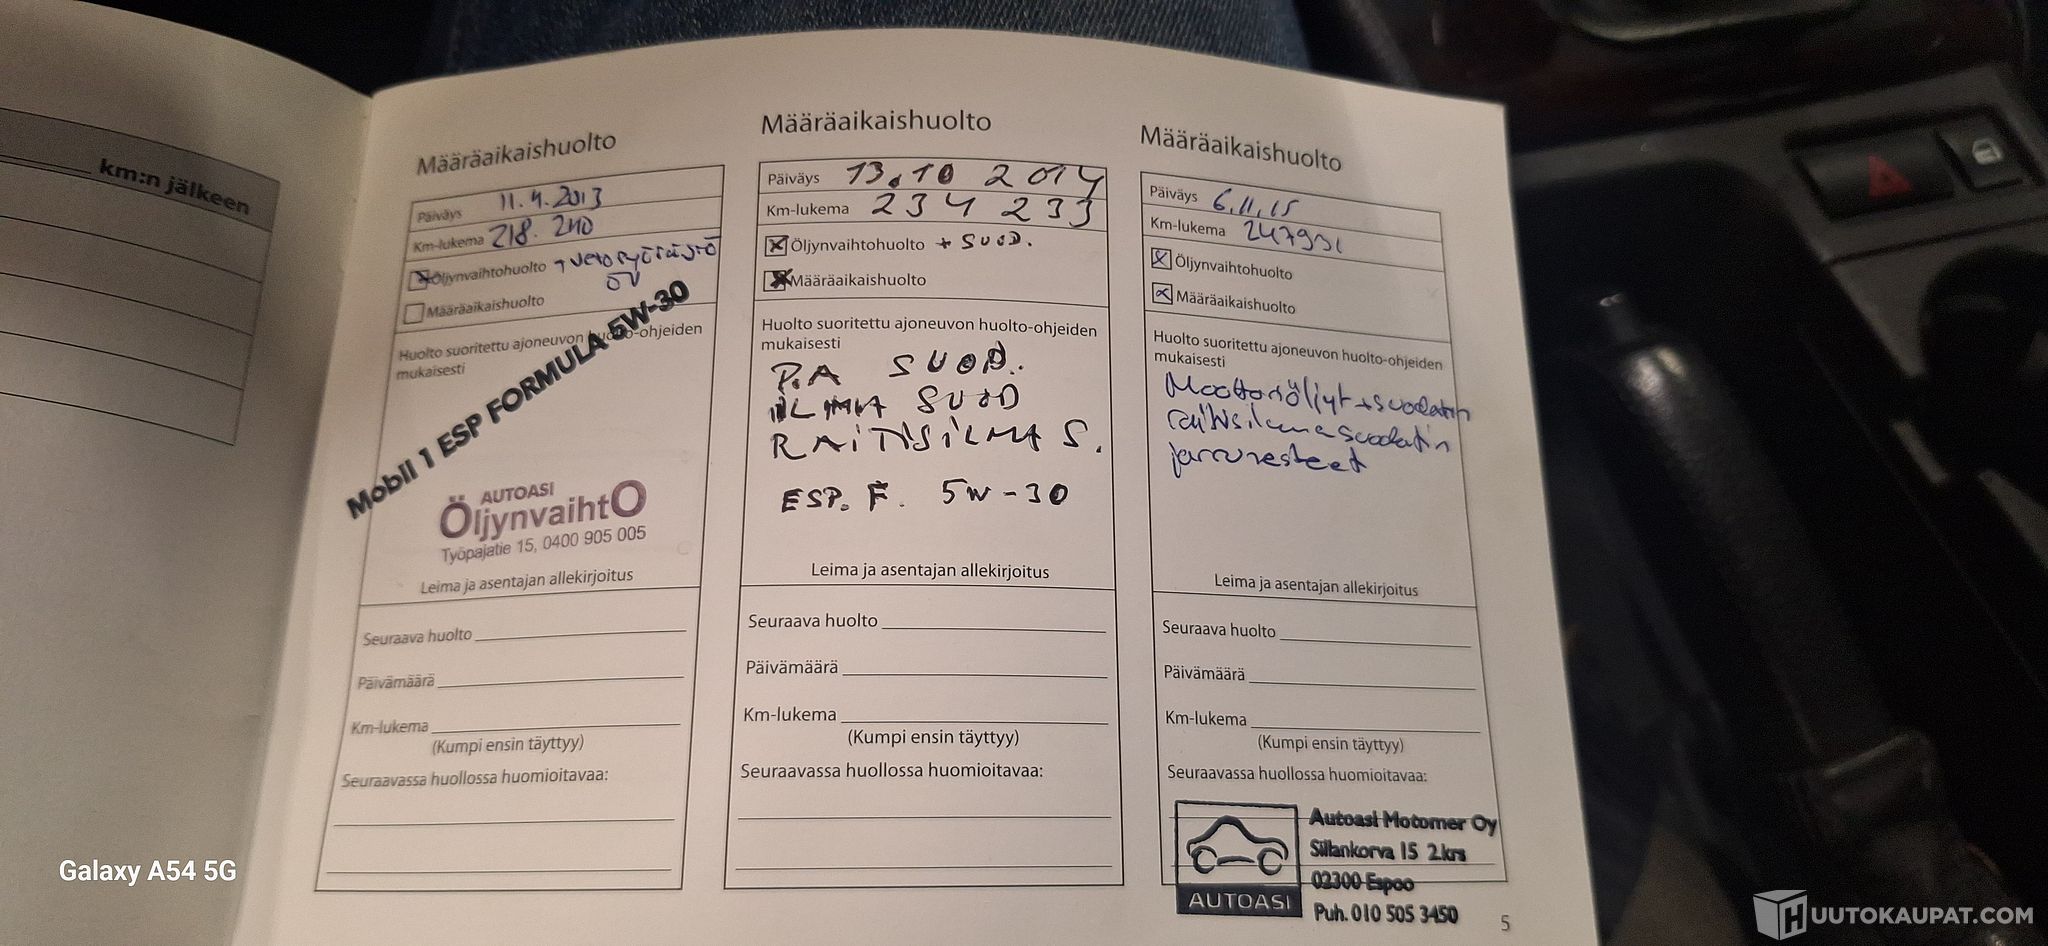 km:n jälkeen
Määräaikaishuolto
Päiväys 11.4.2013
Km-lukema 218.240
Öljynvaihtohuolto + vetopyörästö
öv
Määräaikaishuolto
Huolto suoritettu ajoneuvon huolto-ohjeiden
mukaisesti
Mobil 1 ESP FORMULA 5W-30
AUTOASI
ÖljynvaihtO
Työpajatie 15, 0400 905 005
Leima ja asentajan allekirjoitus
Seuraava huolto
Päivämäärä
Km-lukema
(Kumpi ensin täyttyy)
Seuraavassa huollossa huomioitavaa:
Määräaikaishuolto
Päiväys 13.10 2014
Km-lukema 234 233
Öljynvaihtohuolto + SUOD.
Määräaikaishuolto
Huolto suoritettu ajoneuvon huolto-ohjeiden
mukaisesti
P.A SUOD.
ILMA SUOD
RAITISILMA S.
ESP. F. 5W-30
Leima ja asentajan allekirjoitus
Seuraava huolto
Päivämäärä
Km-lukema
(Kumpi ensin täyttyy)
Seuraavassa huollossa huomioitavaa:
Määräaikaishuolto
Päiväys 6.11.15
Km-lukema 247931
Öljynvaihtohuolto
Määräaikaishuolto
Huolto suoritettu ajoneuvon huolto-ohjeiden
mukaisesti
Moottoriöljyt + suodatin
raitisilmasuodatin
jarrunesteet
Leima ja asentajan allekirjoitus
Seuraava huolto
Päivämäärä
Km-lukema
(Kumpi ensin täyttyy)
Seuraavassa huollossa huomioitavaa:
AUTOASI
Autoasi Motomer Oy
Sillankorva 15 2.krs
02300 Espoo
Puh. 010 505 3450
5
Galaxy A54 5G
HUUTOKAUPAT.COM